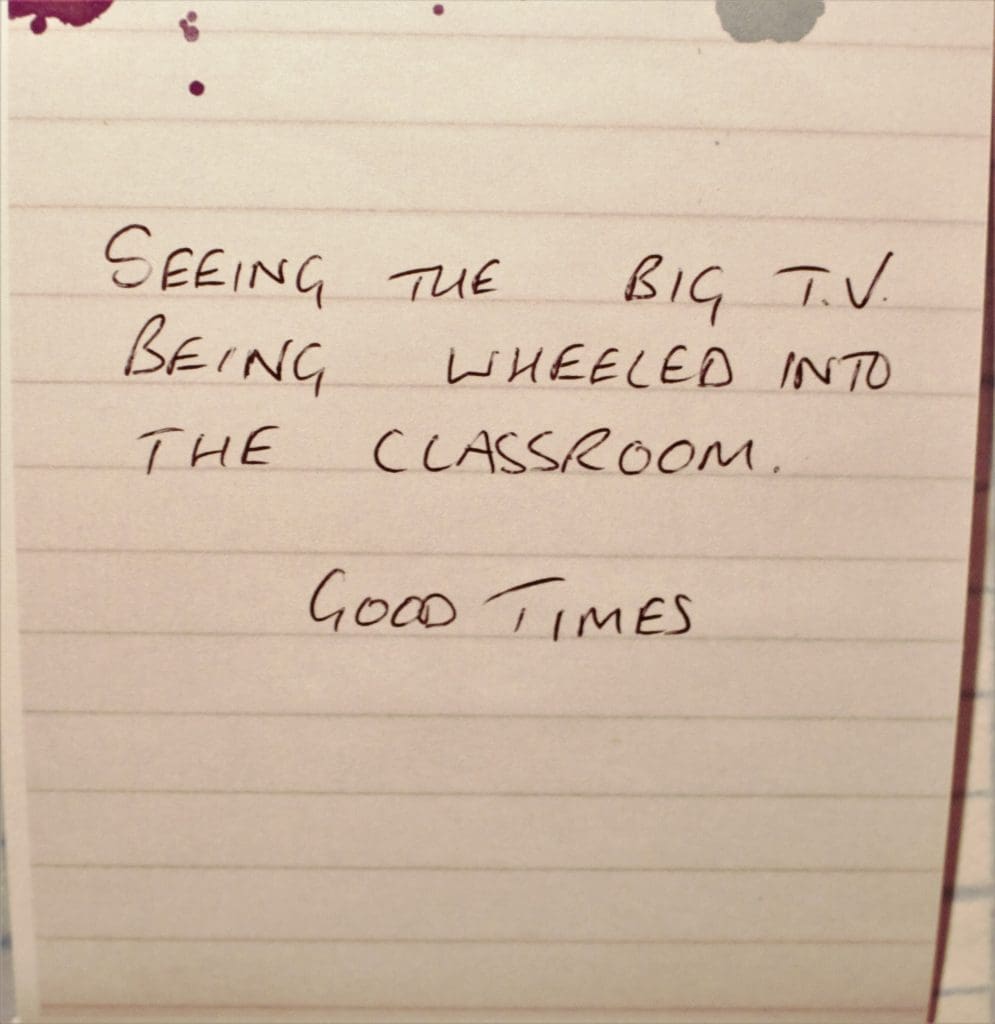 SEEING THE BIG T.V.
BEING WHEELED INTO
THE CLASSROOM.
GOOD TIMES